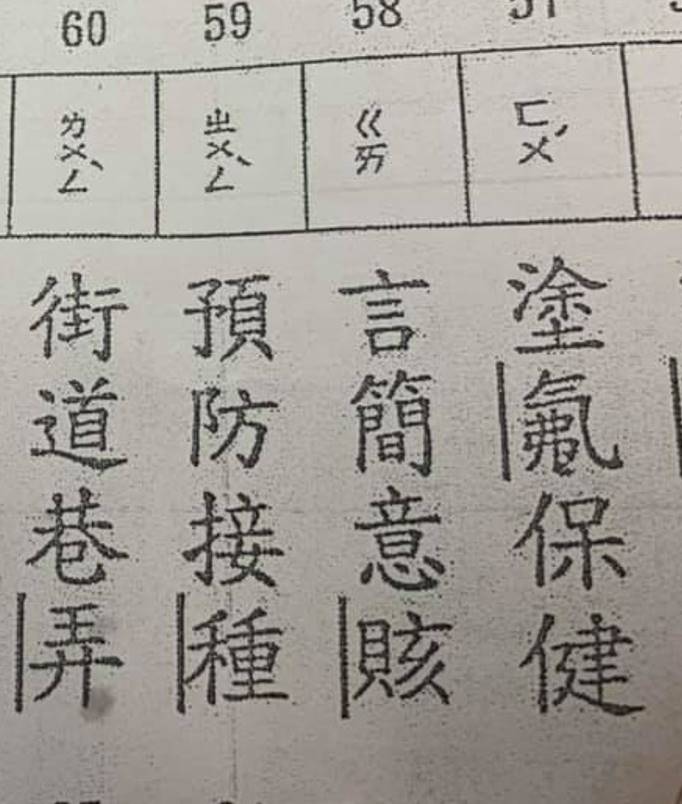 57
ㄈㄨˊ
塗氟保健
58
ㄍㄞ
言簡意賅
59
ㄓㄨㄥˋ
預防接種
60
ㄌㄨㄥˋ
街道巷弄